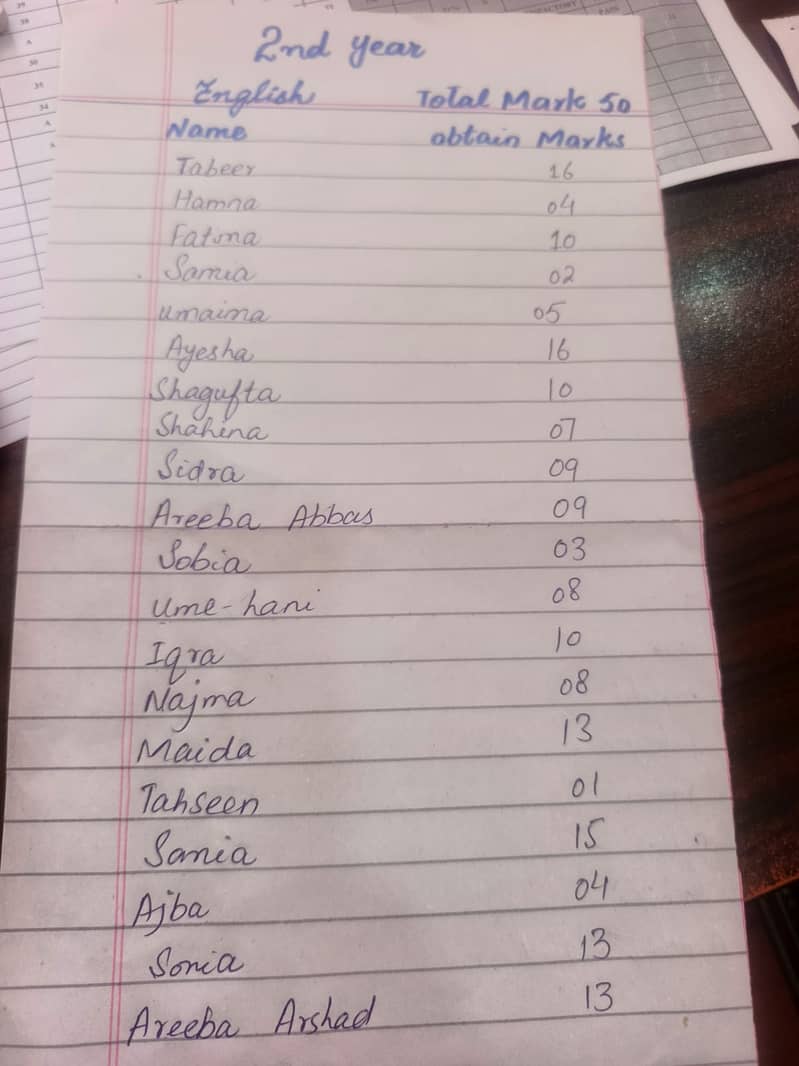 2nd year
English Total Mark 50
Name obtain Marks
Tabeer 16
Hamna 04
Fatima 10
Samia 02
umaima 05
Ayesha 16
Shagufta 10
Shahina 07
Sidra 09
Areeba Abbas 09
Sobia 03
Ume-hani 08
Iqra 10
Najma 08
Maida 13
Tahseen 01
Sania 15
Ajba 04
Sonia 13
Areeba Arshad 13